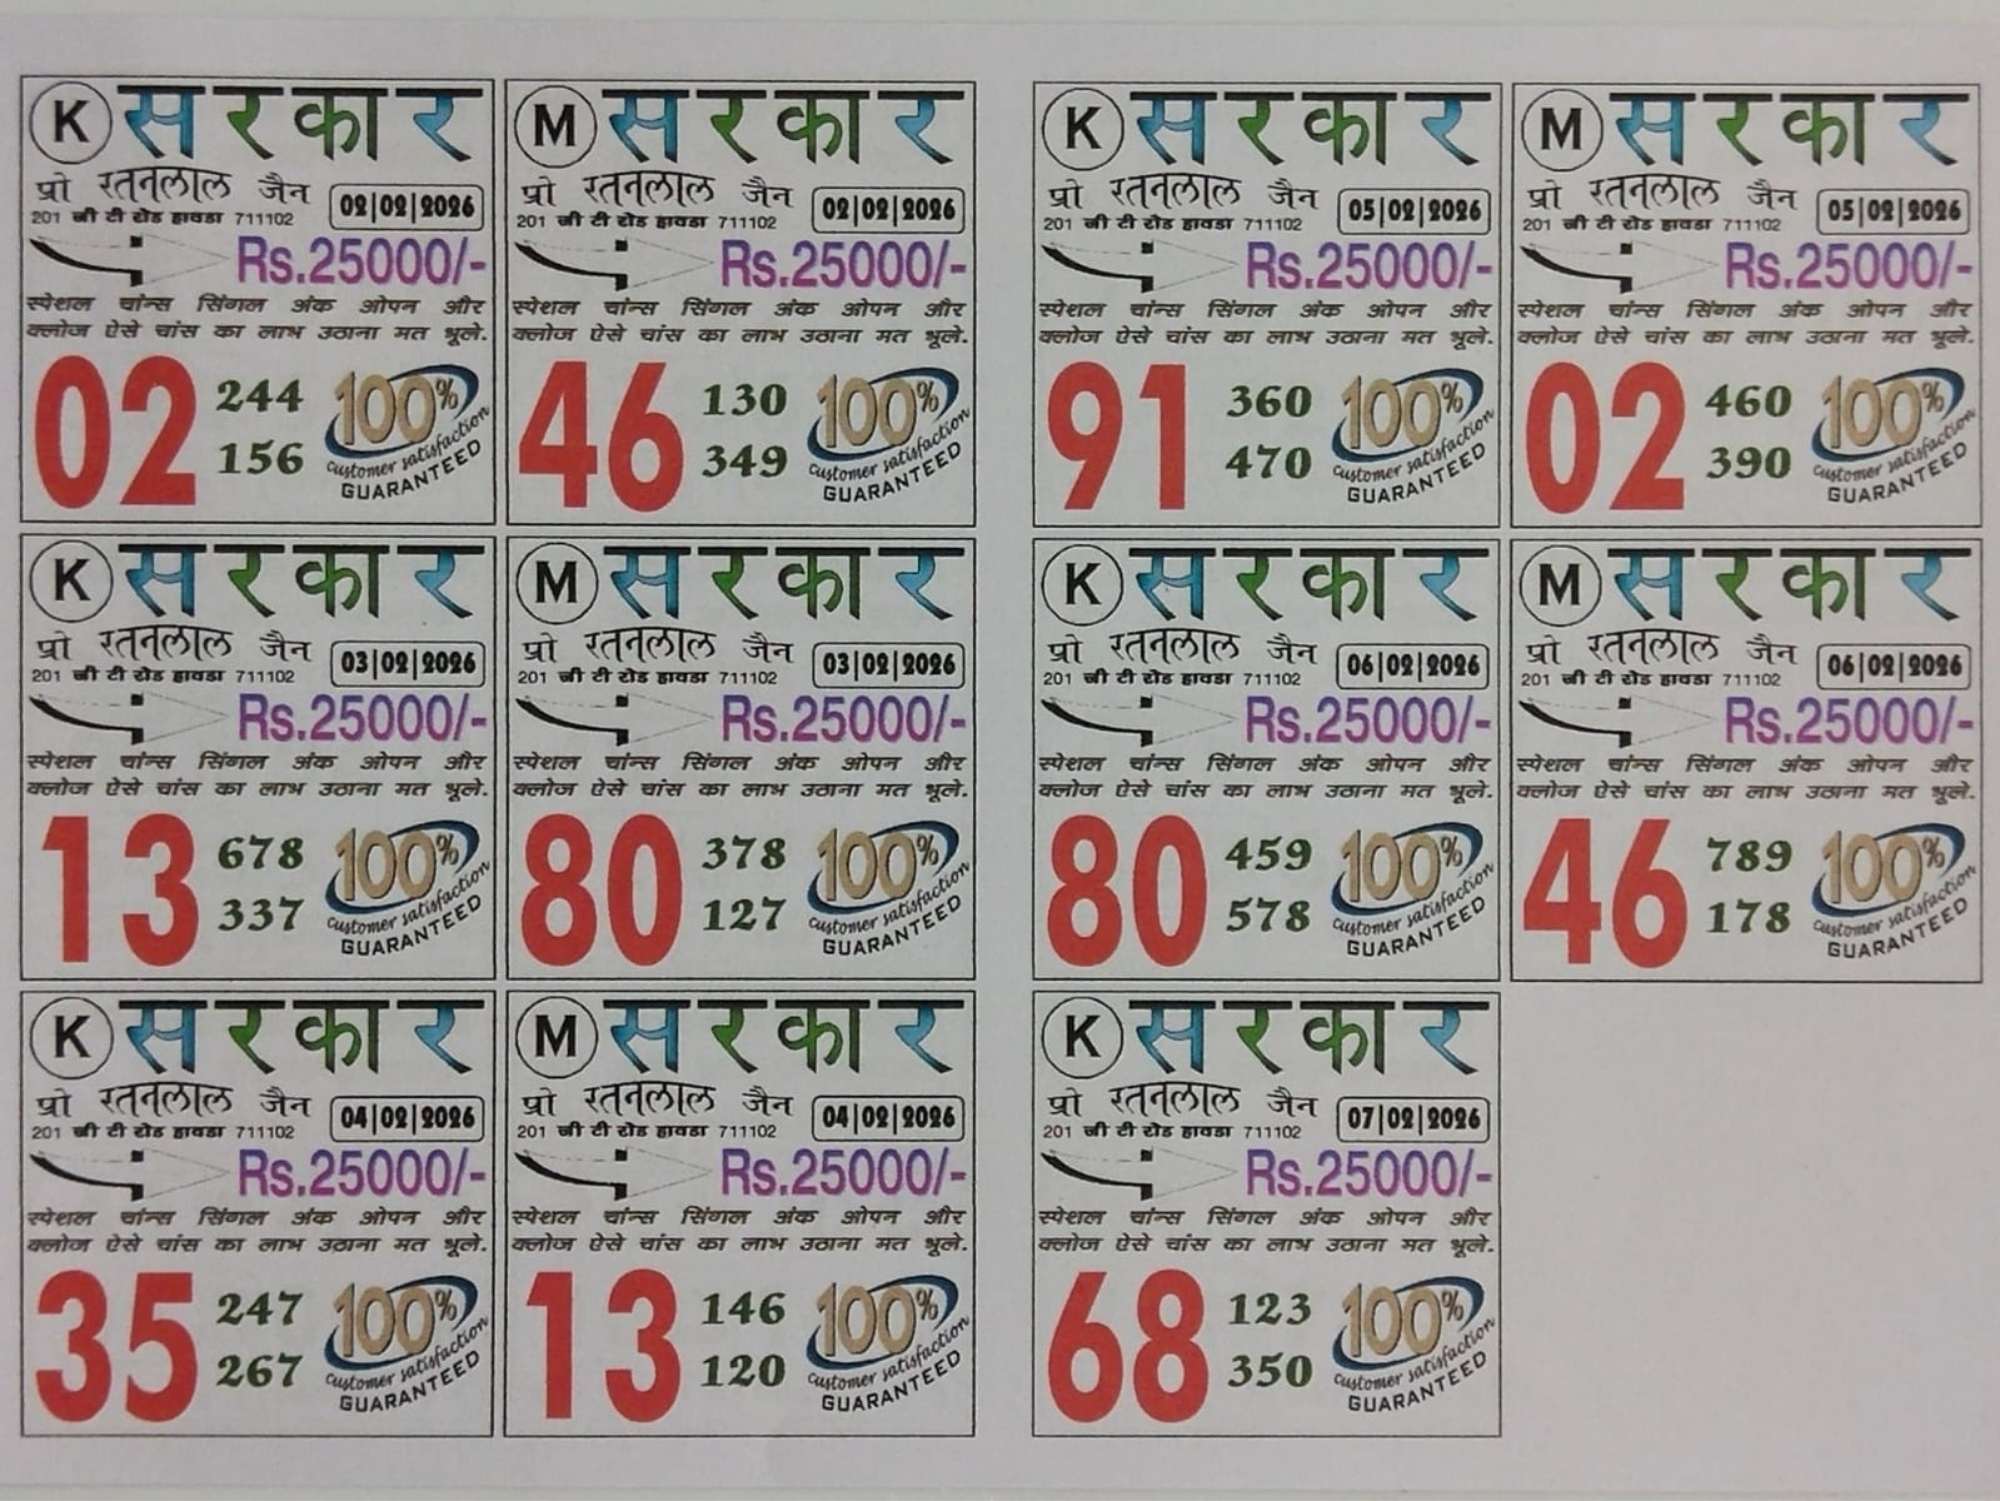 K सरकार
प्रो रतनलाल जैन 02|02|2026
201 जी टी रोड हावडा 711102
Rs.25000/-
स्पेशल चांन्स सिंगल अंक ओपन और
क्लोज ऐसे चांस का लाभ उठाना मत भूले.
02 244 156
100%
customer satisfaction
GUARANTEED
M सरकार
प्रो रतनलाल जैन 02|02|2026
201 जी टी रोड हावडा 711102
Rs.25000/-
स्पेशल चांन्स सिंगल अंक ओपन और
क्लोज ऐसे चांस का लाभ उठाना मत भूले.
46 130 349
100%
customer satisfaction
GUARANTEED
K सरकार
प्रो रतनलाल जैन 05|02|2026
201 जी टी रोड हावडा 711102
Rs.25000/-
स्पेशल चांन्स सिंगल अंक ओपन और
क्लोज ऐसे चांस का लाभ उठाना मत भूले.
91 360 470
100%
customer satisfaction
GUARANTEED
M सरकार
प्रो रतनलाल जैन 05|02|2026
201 जी टी रोड हावडा 711102
Rs.25000/-
स्पेशल चांन्स सिंगल अंक ओपन और
क्लोज ऐसे चांस का लाभ उठाना मत भूले.
02 460 390
100%
customer satisfaction
GUARANTEED
K सरकार
प्रो रतनलाल जैन 03|02|2026
201 जी टी रोड हावडा 711102
Rs.25000/-
स्पेशल चांन्स सिंगल अंक ओपन और
क्लोज ऐसे चांस का लाभ उठाना मत भूले.
13 678 337
100%
customer satisfaction
GUARANTEED
M सरकार
प्रो रतनलाल जैन 03|02|2026
201 जी टी रोड हावडा 711102
Rs.25000/-
स्पेशल चांन्स सिंगल अंक ओपन और
क्लोज ऐसे चांस का लाभ उठाना मत भूले.
80 378 127
100%
customer satisfaction
GUARANTEED
K सरकार
प्रो रतनलाल जैन 06|02|2026
201 जी टी रोड हावडा 711102
Rs.25000/-
स्पेशल चांन्स सिंगल अंक ओपन और
क्लोज ऐसे चांस का लाभ उठाना मत भूले.
80 459 578
100%
customer satisfaction
GUARANTEED
M सरकार
प्रो रतनलाल जैन 06|02|2026
201 जी टी रोड हावडा 711102
Rs.25000/-
स्पेशल चांन्स सिंगल अंक ओपन और
क्लोज ऐसे चांस का लाभ उठाना मत भूले.
46 789 178
100%
customer satisfaction
GUARANTEED
K सरकार
प्रो रतनलाल जैन 04|02|2026
201 जी टी रोड हावडा 711102
Rs.25000/-
स्पेशल चांन्स सिंगल अंक ओपन और
क्लोज ऐसे चांस का लाभ उठाना मत भूले.
35 247 267
100%
customer satisfaction
GUARANTEED
M सरकार
प्रो रतनलाल जैन 04|02|2026
201 जी टी रोड हावडा 711102
Rs.25000/-
स्पेशल चांन्स सिंगल अंक ओपन और
क्लोज ऐसे चांस का लाभ उठाना मत भूले.
13 146 120
100%
customer satisfaction
GUARANTEED
K सरकार
प्रो रतनलाल जैन 07|02|2026
201 जी टी रोड हावडा 711102
Rs.25000/-
स्पेशल चांन्स सिंगल अंक ओपन और
क्लोज ऐसे चांस का लाभ उठाना मत भूले.
68 123 350
100%
customer satisfaction
GUARANTEED